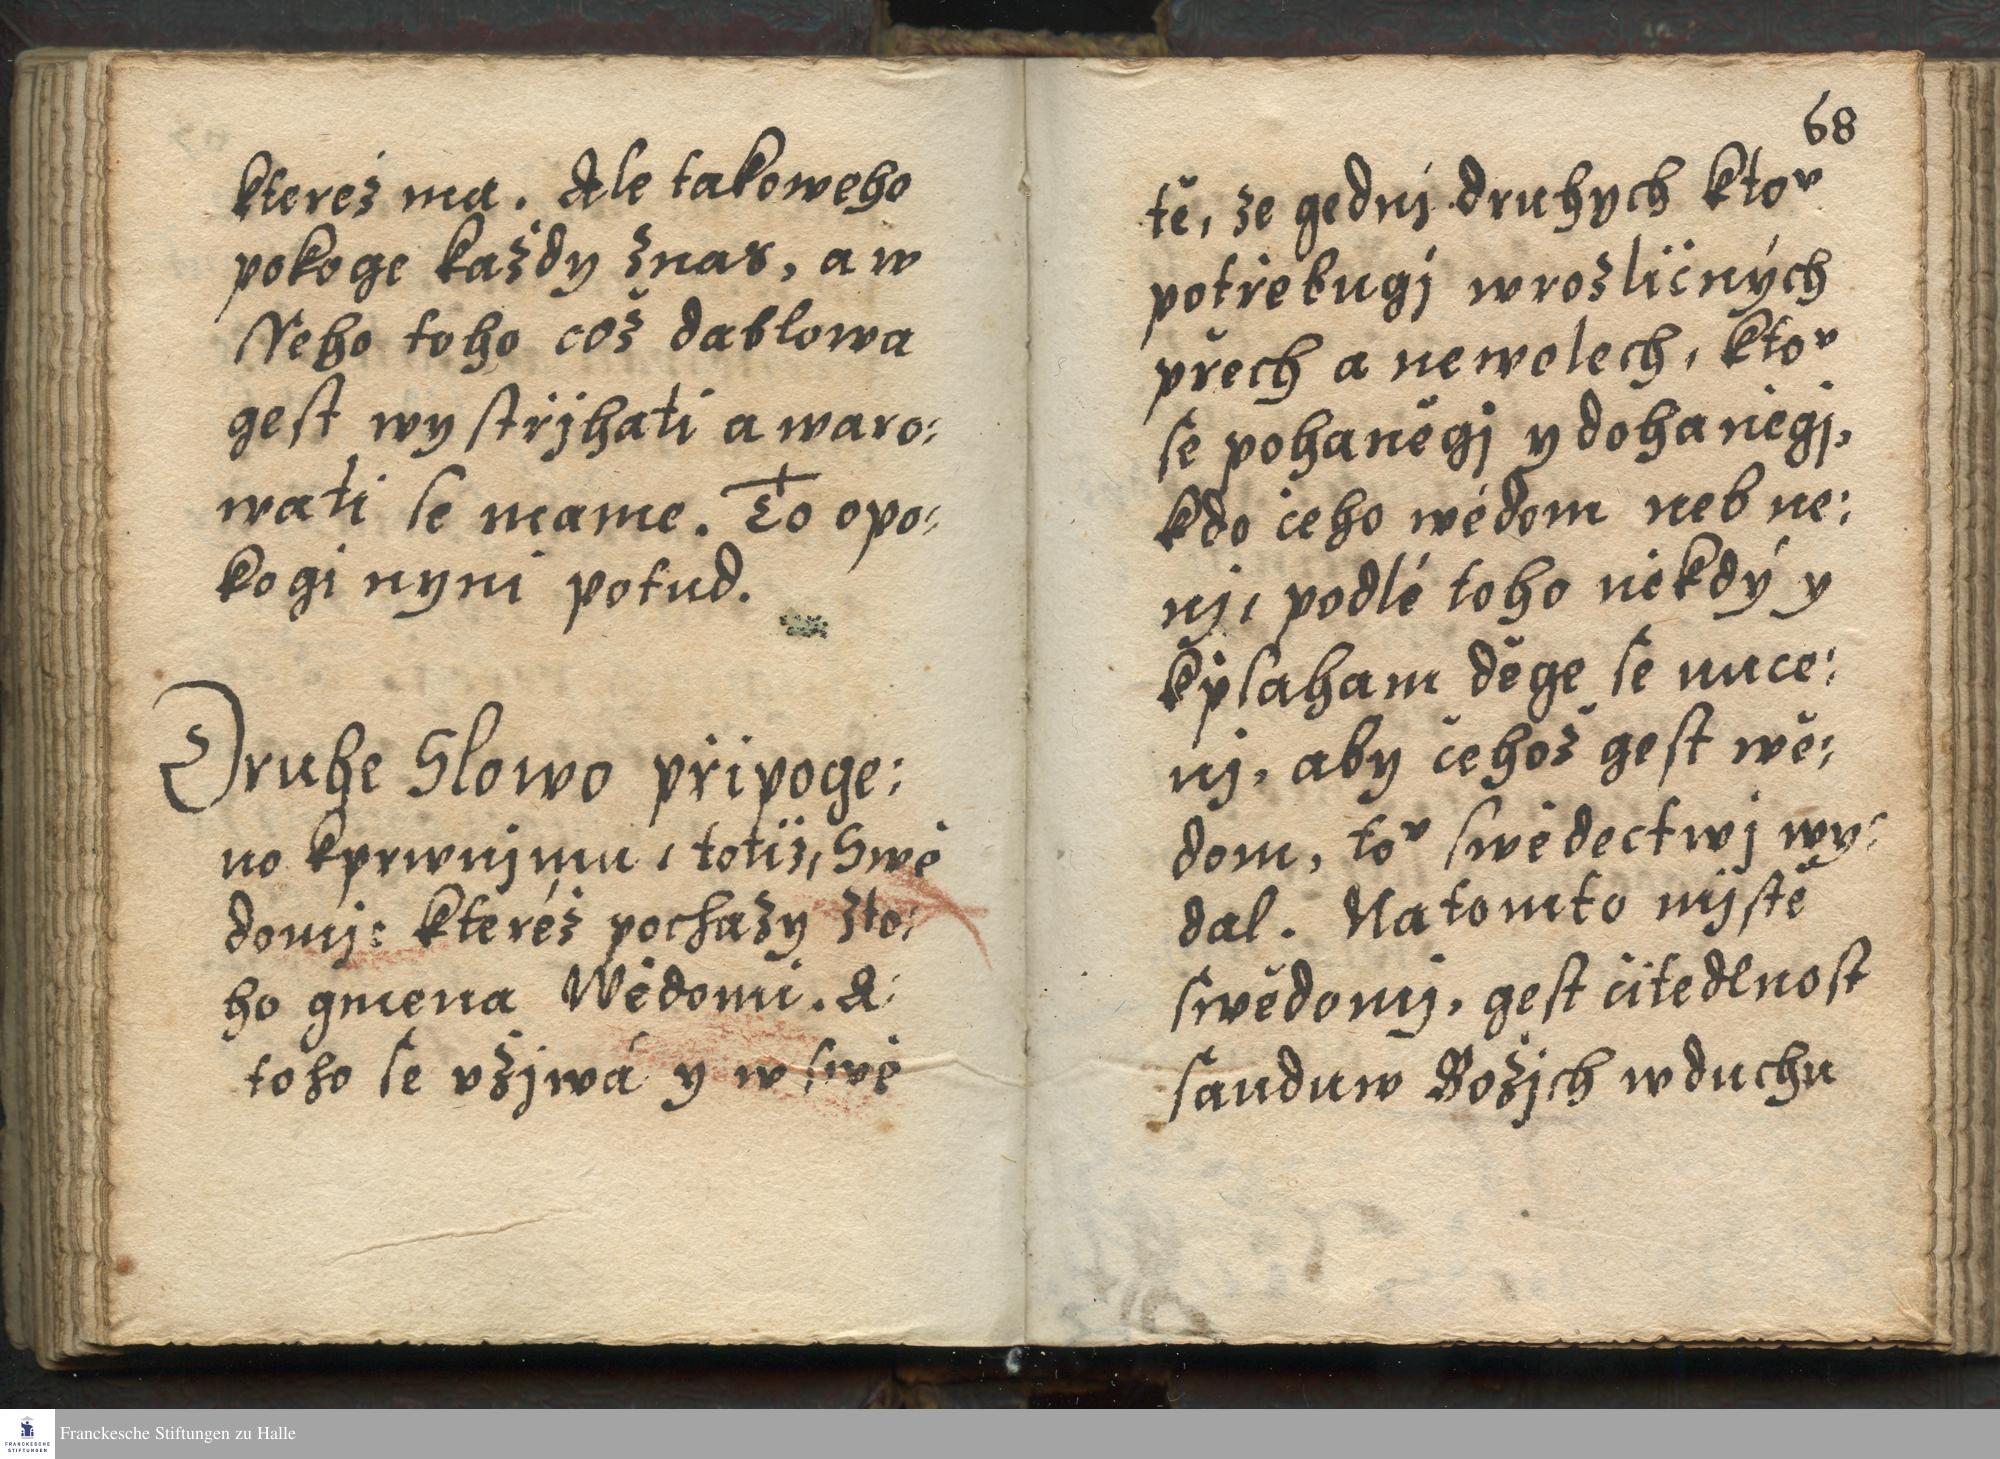 ktereż ma. Ale takoweho
pokoge każdy żnas, a w
Neho toho còż dablowa
gest wystřjhati a waro:
wati se mame. To opo:
kogi nyni potud.
Druhe Slowo připoge:
no kprwnjmu, totiż, Swě
domj: kteréż pochaży żto:
ho gmena Wědomi. A:
toho se vżjwá y w swě
68
tě, że gednj druhych ktoͮ
potřebugj wrożličných
přech a newolech, ktoͮ
se pohaněgj y dohaněgj,
kdo čeho wědom neb ne:
nj, podlé toho někdý y
kpřsaham děge se nuce:
nj, aby čehoż gest wě:
dom, toͮ swědectwj wy:
dal. Na tomto mjstě
swědomj, gest čitedlnost
sauduw Bożjch wduchu
Franckesche Stiftungen zu Halle
FRANCKESCHE
STIFTUNGEN